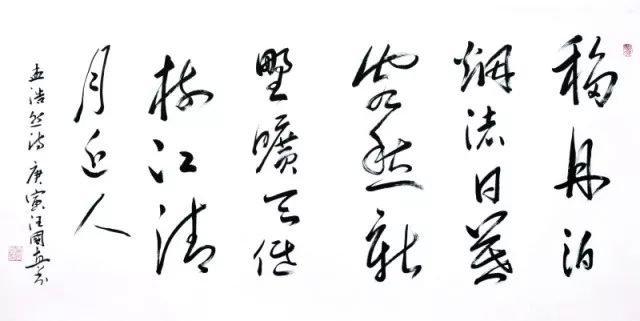 移舟泊
烟渚日暮
客愁新
野曠天低
树江清
月近人
孟浩然诗 庚寅汪国真书